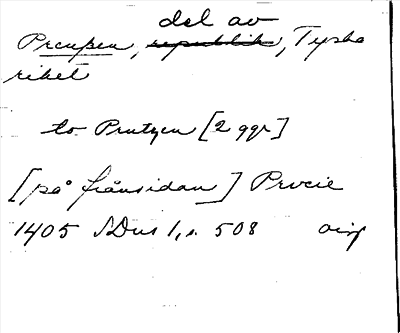 del av
Preussen, republik, Tyska
riket
to Prutzen [2 ggr]
[på frånsidan] Prvcie
1405 SDns 1, s. 508 orig